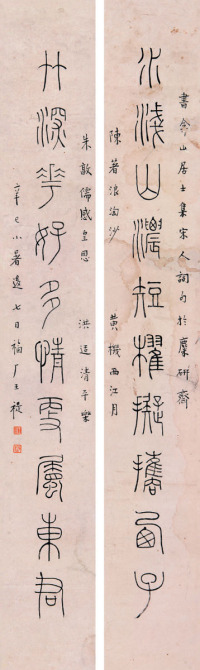 書山居士集宋人詞句於麋研齋
水淺山濃短櫂擬攜西子
陳著浪淘沙 黃機西江月
朱敦儒感皇恩 洪适清平樂
竹深華好多情更屬東君
辛巳小暑七日福厂王禔